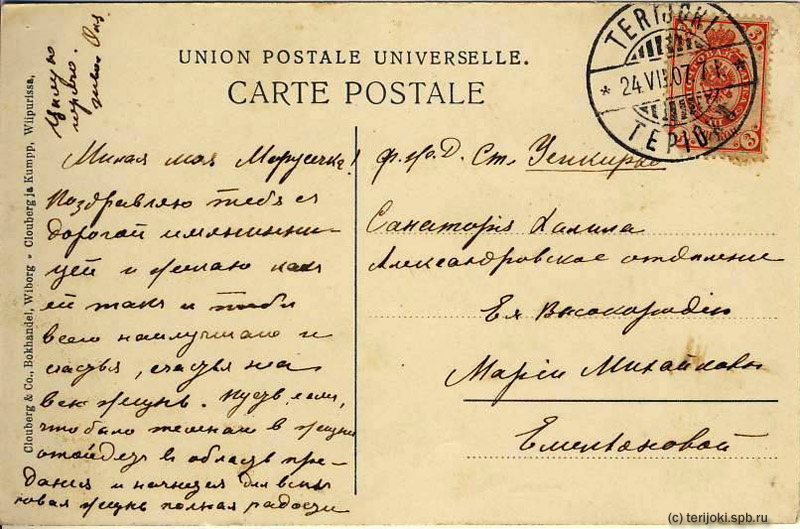 UNION POSTALE UNIVERSELLE.
CARTE POSTALE
TERIJOKI
24.VII.07
Clouberg & Co., Bokhandel, Wiborg - Clouberg ja Kumpp, Wiipurissa,
Целую
Милая моя Марусечка!
Поздравляю тебя съ
дорогой имянинни-
цей и желаю какъ
ей такъ и тебѣ
всего наилучшаго и
счастья, счастья на
всю жизнь. Пусть, если,
что было темнаго в жизни
отойдетъ в область пре-
дания и начнется для васъ
новая жизнь полная радости
Ф.ж.Д. Ст. Уси
Санаторія Халила
Александровское отдѣление
Ея Высокородію
Маріи Михайловнѣ
Емельяновой
(c) terijoki.spb.ru